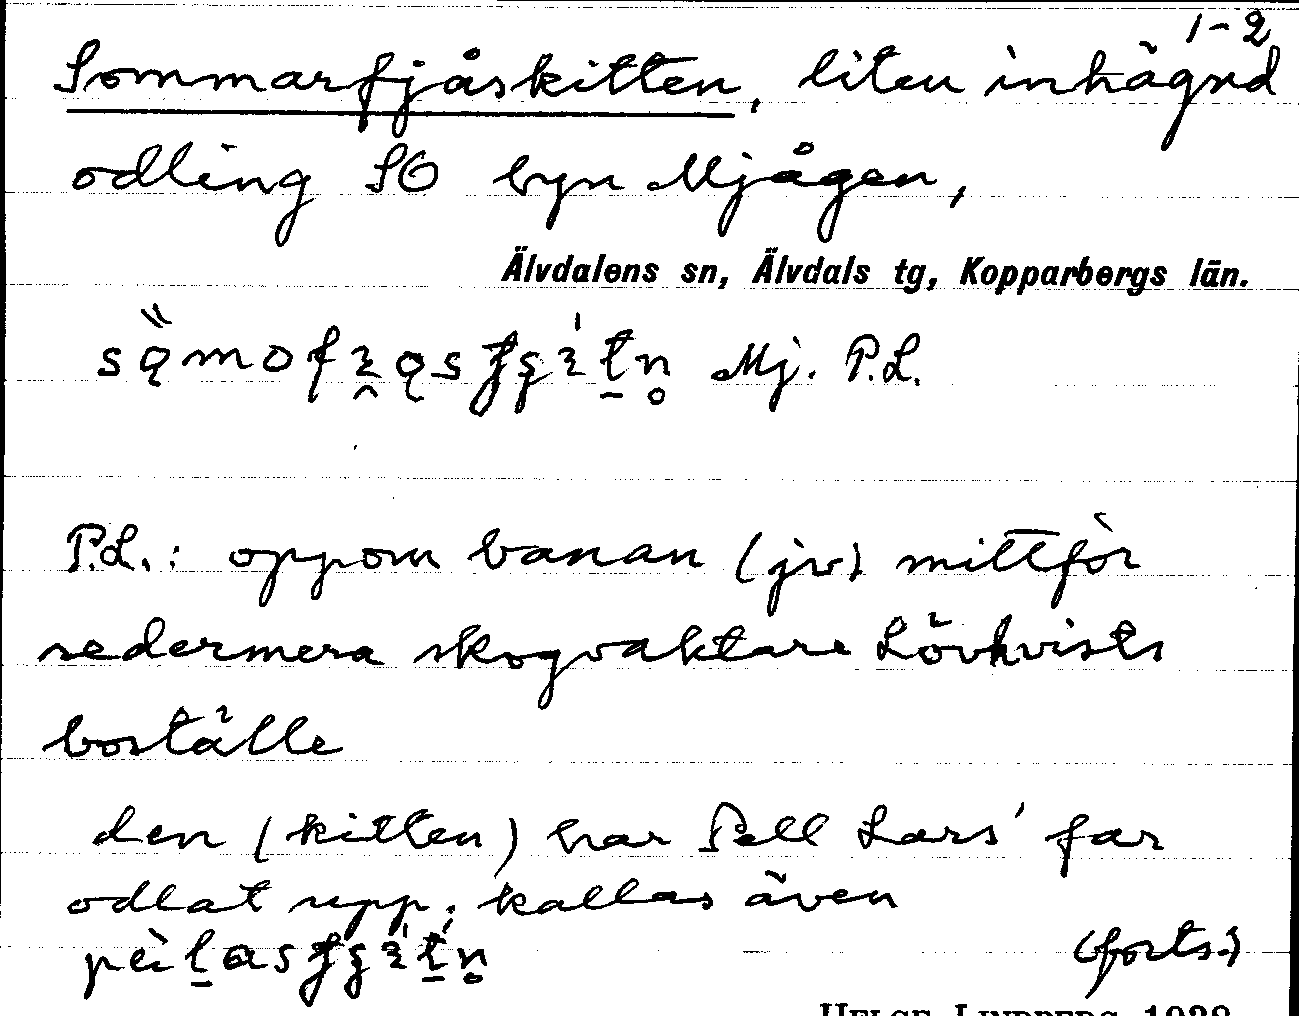 1-2
Sommarfjåskitten, liten inhägnd
odling SO byn Mjågen,
Älvdalens sn, Älvdals tg, Kopparbergs län.
Mj. P.L.
P.L.: oppom banan (jv) mittför
sedermera skogvaktare Lövkvists
boställe
den (kitten) har Pell Lars' far
odlat upp; kallas även
(forts.)
HELGE LINDBERG 1938